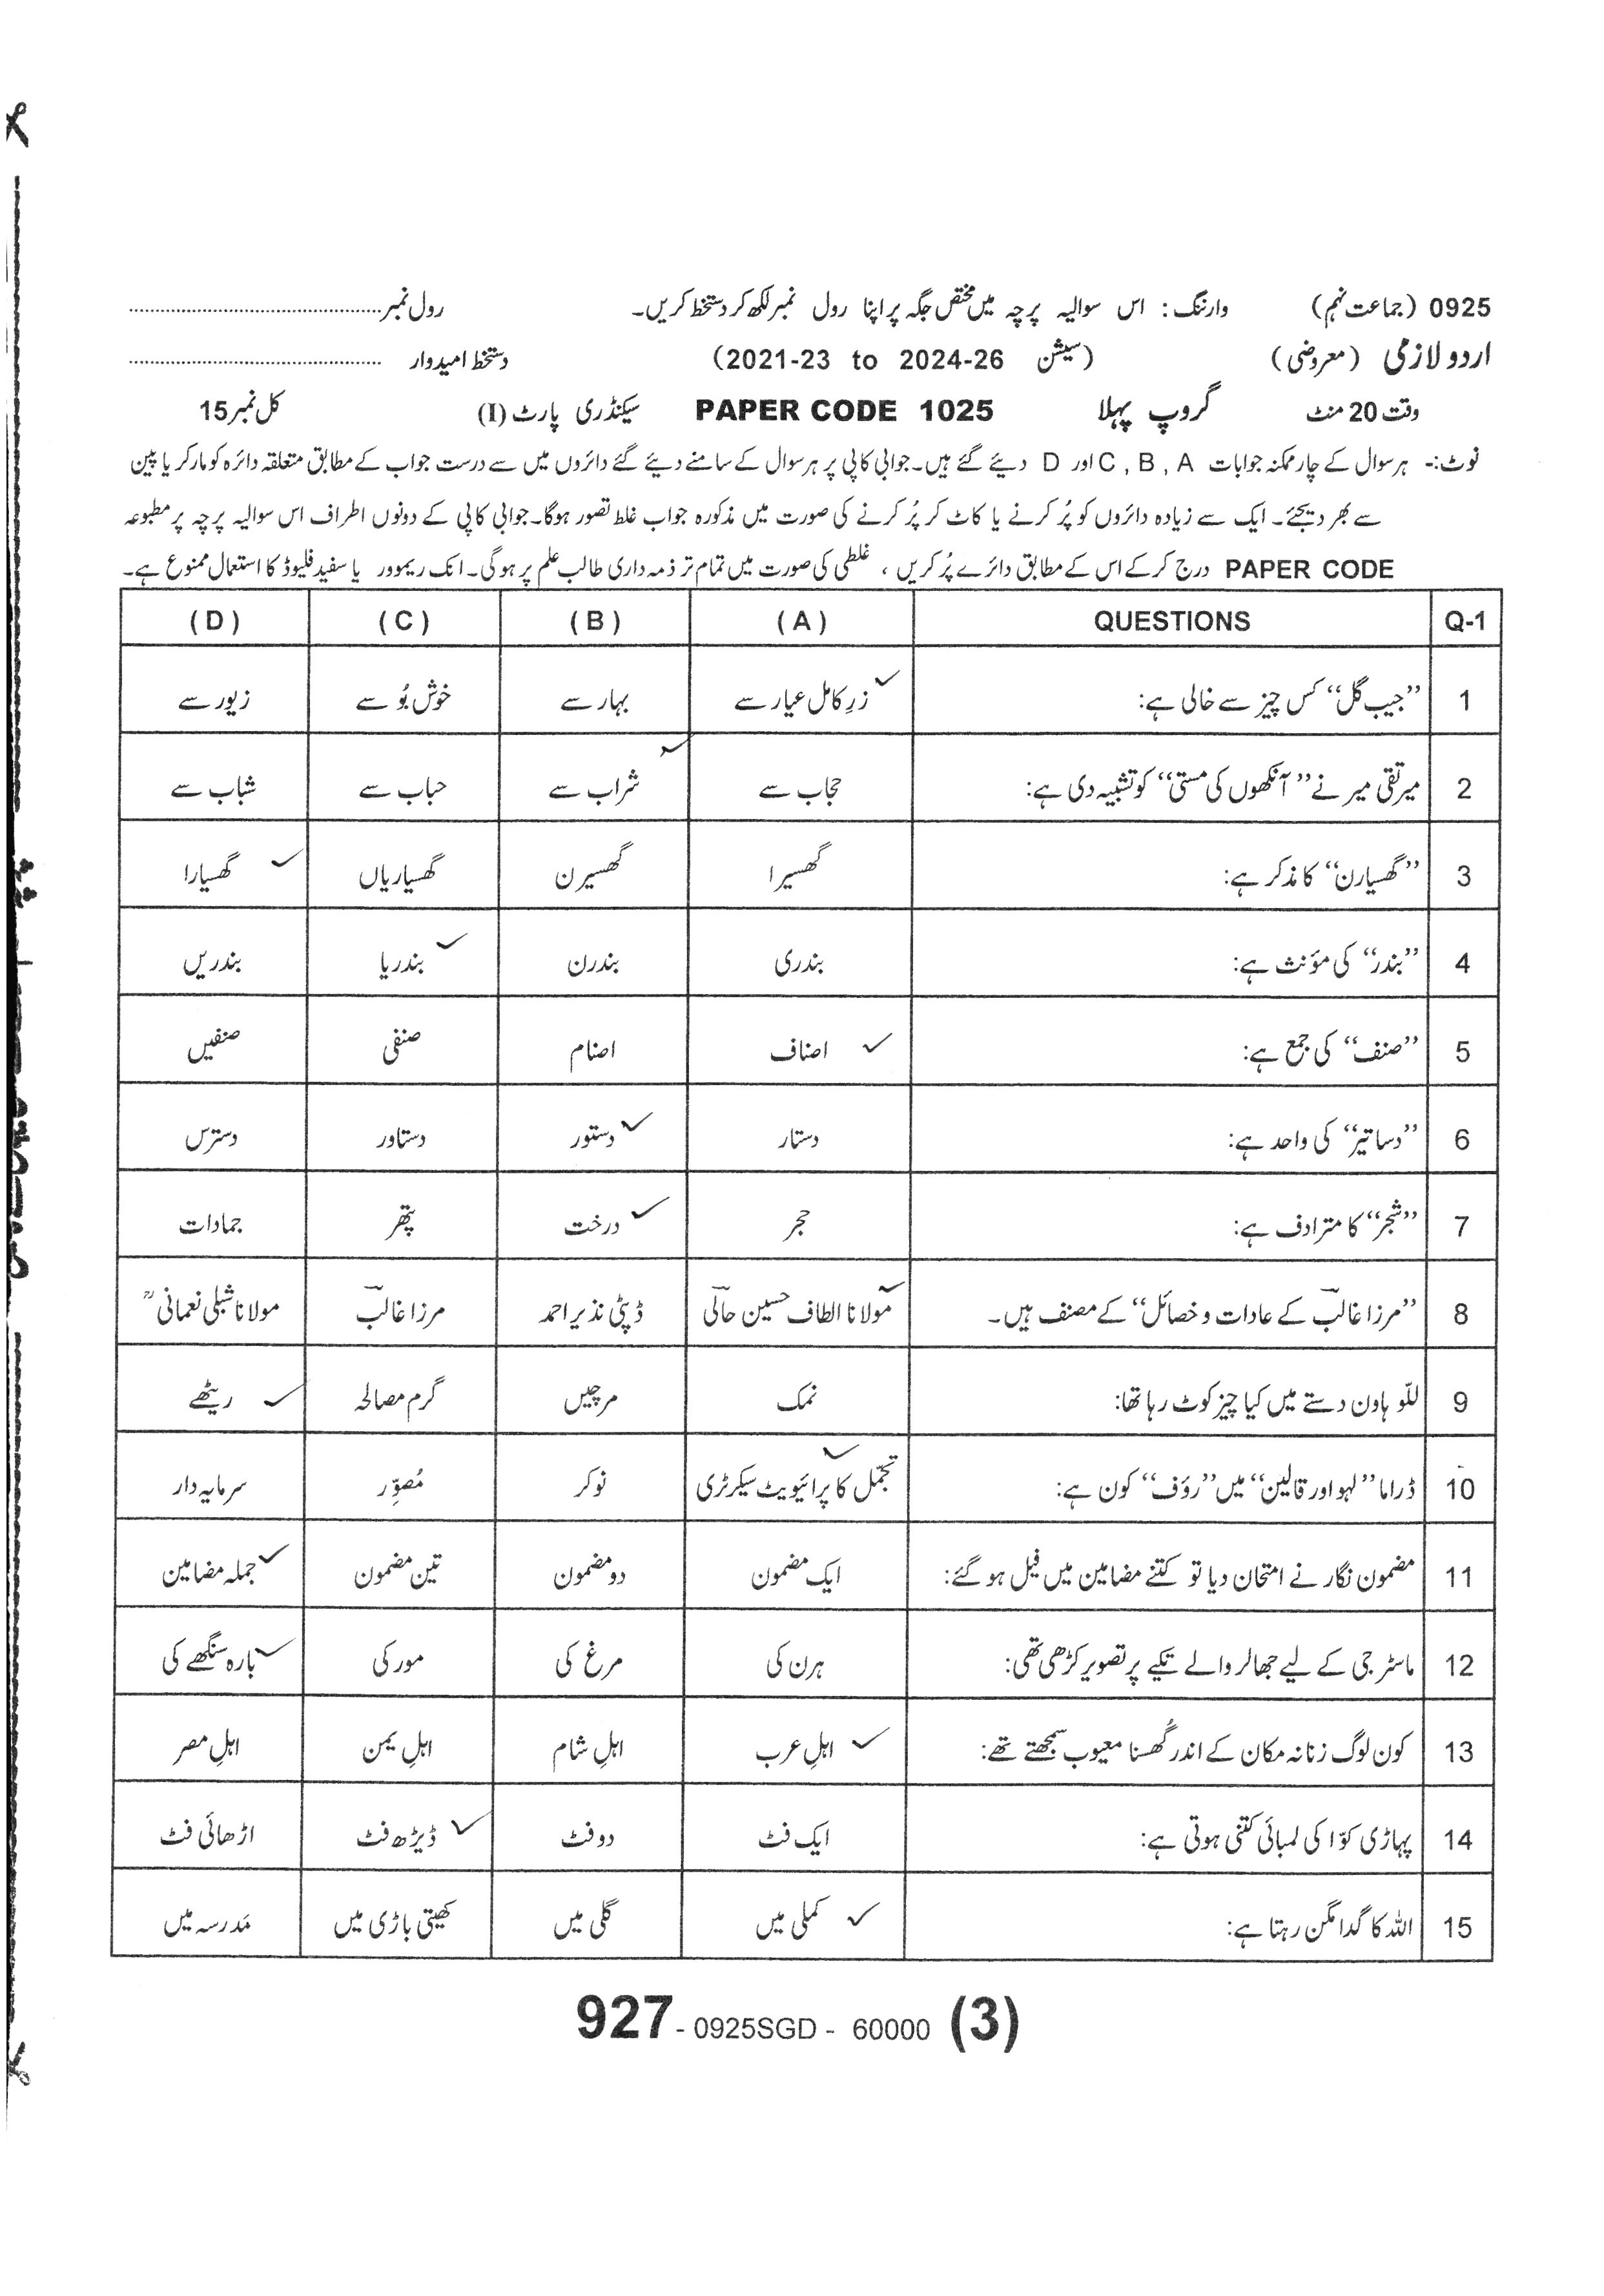 0925 (جماعت نہم) وارننگ: اس سوالیہ پرچہ میں مختص جگہ پر اپنا رول نمبر لکھ کر دستخط کریں۔ رول نمبر........................
اردو لازمی (معروضی) (سیشن 2021-23 to 2024-26) دستخط امیدوار ........................
وقت 20 منٹ گروپ پہلا PAPER CODE 1025 سیکنڈری پارٹ (I) کل نمبر 15
نوٹ:- ہر سوال کے چار ممکنہ جوابات A , B , C اور D دیئے گئے ہیں۔ جوابی کاپی پر ہر سوال کے سامنے دیئے گئے دائروں میں سے درست جواب کے مطابق متعلقہ دائرہ کو مارکر یا پین
سے بھر دیجئے۔ ایک سے زیادہ دائروں کو پُر کرنے یا کاٹ کر پُر کرنے کی صورت میں مذکورہ جواب غلط تصور ہوگا۔ جوابی کاپی کے دونوں اطراف اس سوالیہ پرچہ پر مطبوعہ
PAPER CODE درج کر کے اس کے مطابق دائرے پُر کریں ، غلطی کی صورت میں تمام تر ذمہ داری طالب علم پر ہوگی۔ انک ریموور یا سفید فلیوڈ کا استعمال ممنوع ہے۔
Q-1 QUESTIONS (A) (B) (C) (D)
1 ’’جیب گل‘‘ کس چیز سے خالی ہے: زرِ کامل عیار سے ✓ بہار سے خوش بُو سے زیور سے
2 میر تقی میر نے ’’آنکھوں کی مستی‘‘ کو تشبیہ دی ہے: حجاب سے شراب سے ✓ حباب سے شباب سے
3 ’’گھسیارن‘‘ کا مذکر ہے: گھسیرا گھسیرن گھسیاریاں گھسیارا ✓
4 ’’بندر‘‘ کی مؤنث ہے: بندری بندرن بندریا ✓ بندریں
5 ’’صنف‘‘ کی جمع ہے: اصناف ✓ اصنام صنفی صنفیں
6 ’’دساتیر‘‘ کی واحد ہے: دستار دستور ✓ دستاور دسترس
7 ’’شجر‘‘ کا مترادف ہے: حجر درخت ✓ پتھر جمادات
8 ’’مرزا غالبؔ کے عادات و خصائل‘‘ کے مصنف ہیں۔ مولانا الطاف حسین حالیؔ ✓ ڈپٹی نذیر احمد مرزا غالبؔ مولانا شبلی نعمانیؒ
9 للّو ہاون دستے میں کیا چیز کوٹ رہا تھا: نمک مرچیں گرم مصالحہ ریٹھے ✓
10 ڈراما ’’لہو اور قالین‘‘ میں ’’رؤف‘‘ کون ہے: تجمّل کا پرائیویٹ سیکرٹری ✓ نوکر مُصوِّر سرمایہ دار
11 مضمون نگار نے امتحان دیا تو کتنے مضامین میں فیل ہو گئے: ایک مضمون دو مضمون تین مضمون جملہ مضامین ✓
12 ماسٹر جی کے لیے جھالر والے تکیے پر تصویر کڑھی تھی: ہرن کی مرغ کی مور کی بارہ سنگھے کی ✓
13 کون لوگ زنانہ مکان کے اندر گُھسنا معیوب سمجھتے تھے: اہلِ عرب ✓ اہلِ شام اہلِ یمن اہلِ مصر
14 پہاڑی کوّا کی لمبائی کتنی ہوتی ہے: ایک فٹ دو فٹ ڈیڑھ فٹ ✓ اڑھائی فٹ
15 اللہ کا گدا مگن رہتا ہے: کملی میں ✓ گلی میں کھیتی باڑی میں مَدرسہ میں
927 - 0925SGD - 60000 (3)